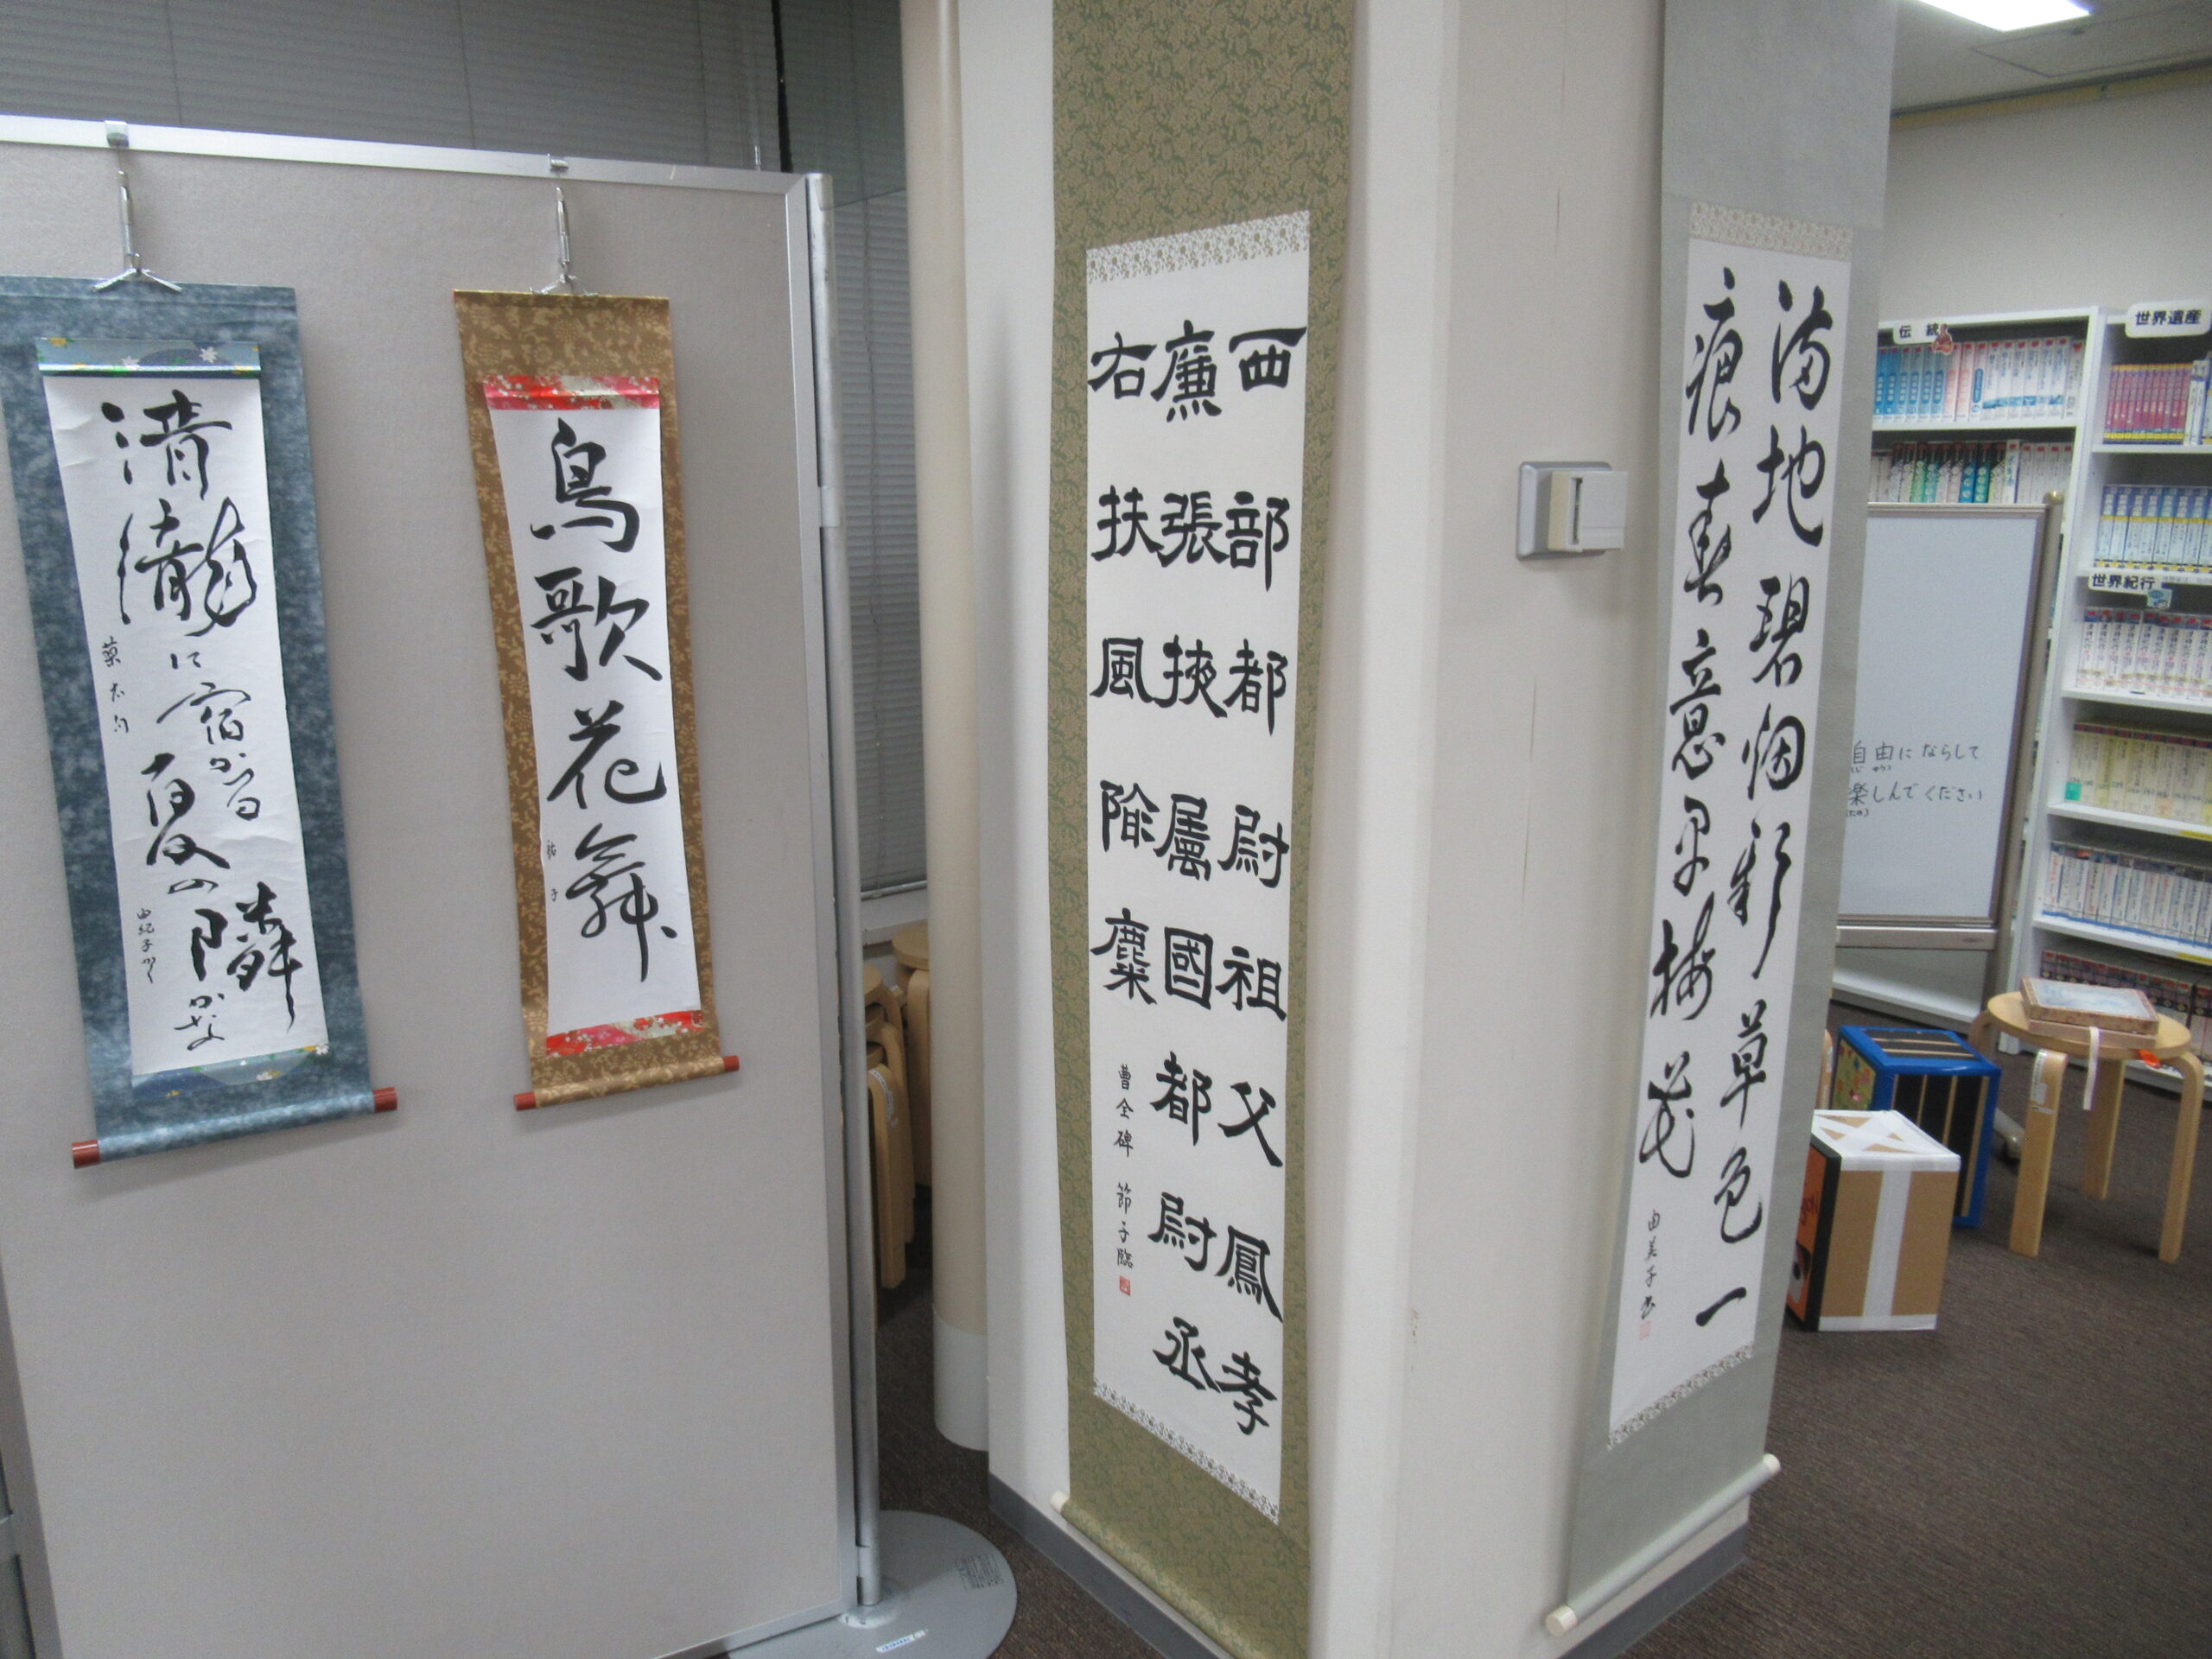 清瀧に
宿かる
夏の
隣かな
由紀子かく
鳥歌花舞
祐子
西部都尉祖父鳳孝
廉張掖屬國都尉丞
右扶風隃麋
曹全碑 節子臨
満地碧烟新草色一
痕春意早梅花
由美子書
伝統
世界遺産
世界紀行
自由にならして
楽しんでください